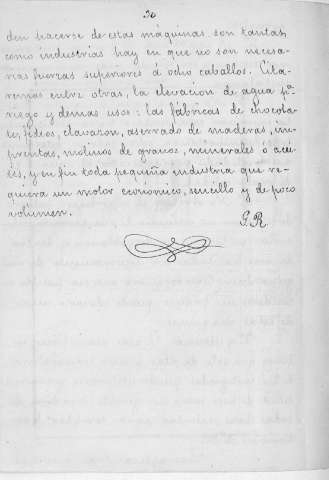 30
den hacerse de estas máquinas son tantas,
como industrias hay en que no son necesa-
rias fuerzas superiores á ocho caballos. Cita-
remos entre otras, la elevación de agua pª
riego y demas usos: las fábricas de chocola-
te, fideos, clavazon, aserrado de maderas, im-
prentas, molinos de granos, minerales ó acei-
tes, y en fin toda pequeña industria que re-
quiera un motor económico, sencillo y de poco
volúmen.
G. R.